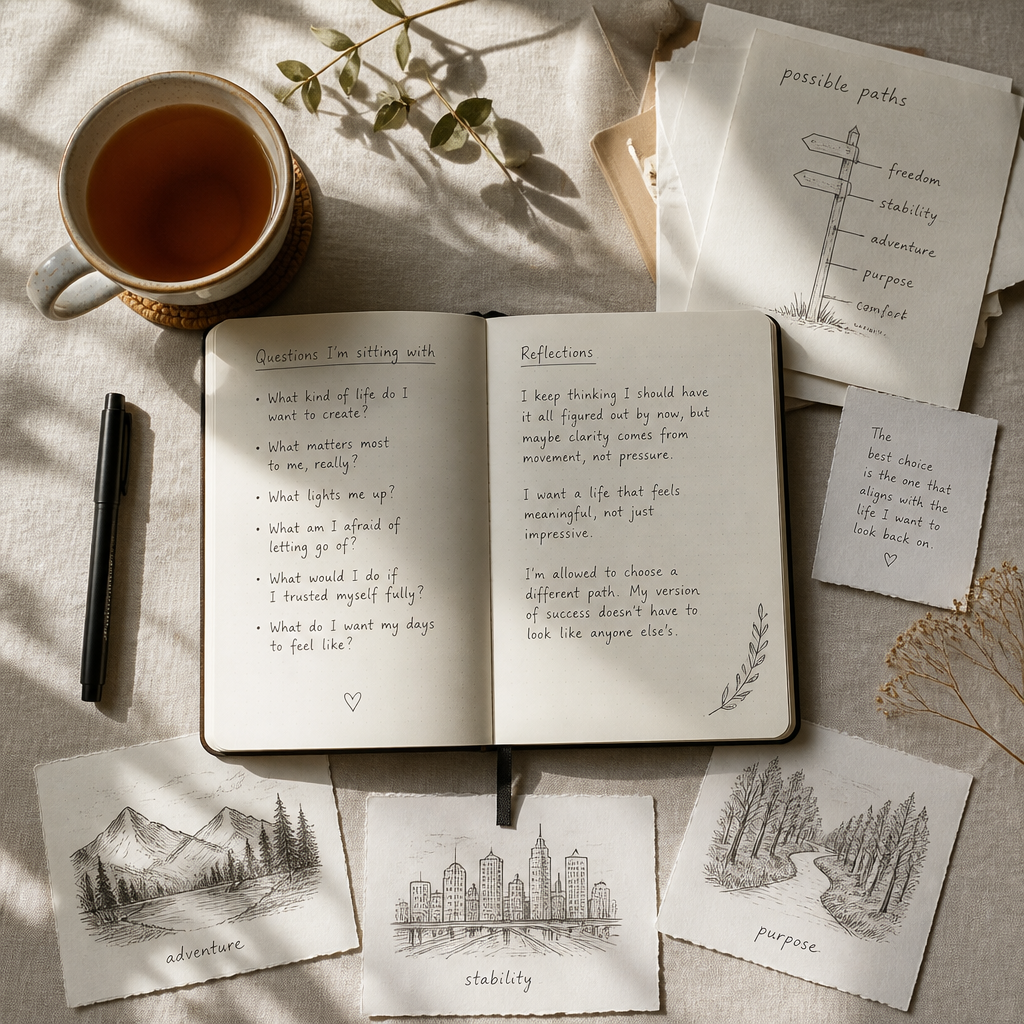 possible paths
freedom
stability
adventure
purpose
comfort
Questions I'm sitting with
• What kind of life do I
want to create?
• What matters most
to me, really?
• What lights me up?
• What am I afraid of
letting go of?
• What would I do if
I trusted myself fully?
• What do I want my days
to feel like?
Reflections
I keep thinking I should have
it all figured out by now, but
maybe clarity comes from
movement, not pressure.
I want a life that feels
meaningful, not just
impressive.
I'm allowed to choose a
different path. My version
of success doesn't have to
look like anyone else's.
The
best choice
is the one that
aligns with the
life I want to
look back on.
adventure
stability
purpose